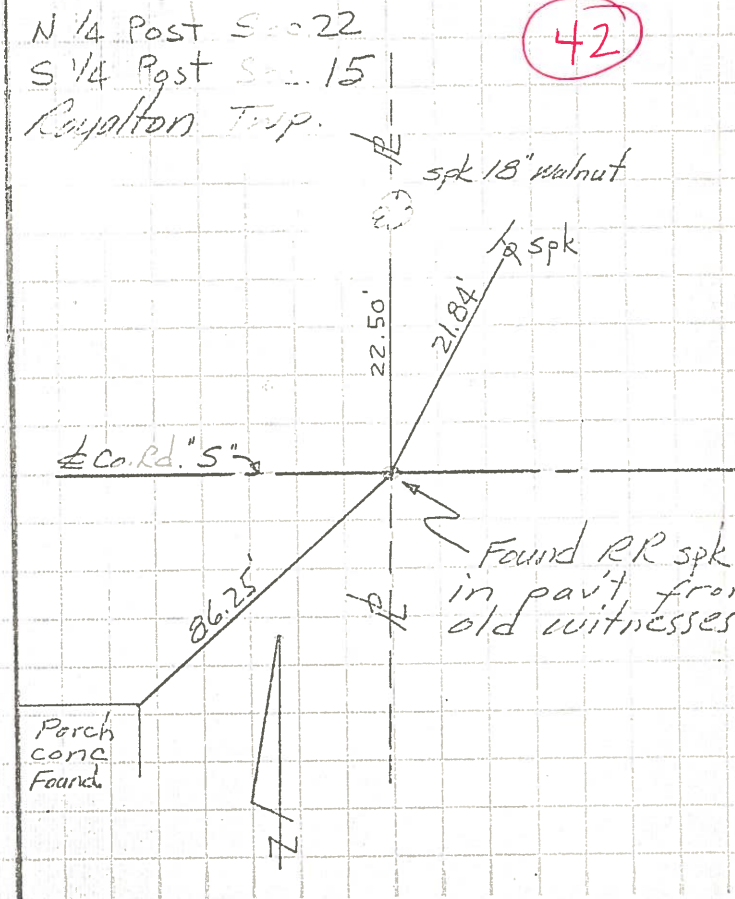 N 1/4 Post Sec. 22
42
S 1/4 Post Sec. 15
Royalton Twp.
PL
spk 18" walnut
spk
22.50'
21.84'
℄ Co. Rd. "S"
Found RR spk
in pav't from
old witnesses
86.25'
PL
Porch
conc
Found.
N